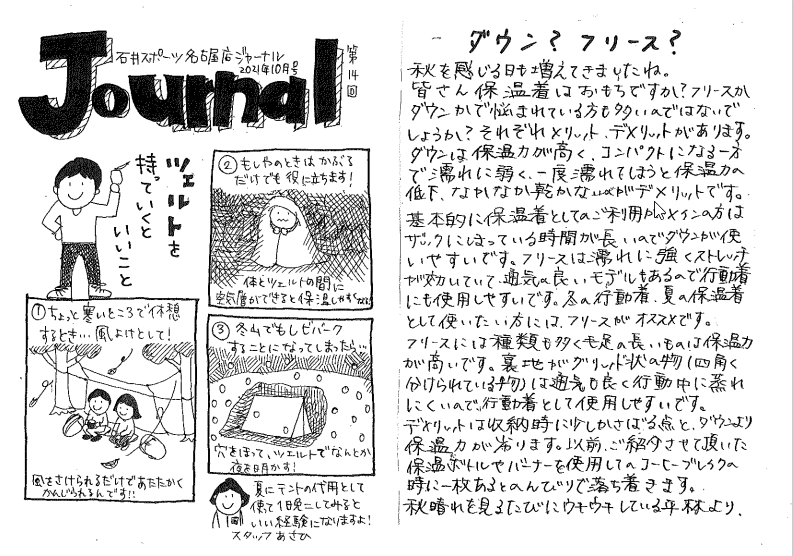 石井スポーツ名古屋店ジャーナル
2021年10月号
第14回
Journal
ツェルトを
持っていくと
いいこと
①ちょっと寒いところで休憩
するとき…風よけとして!
風をさけられるだけであたたかく
かんじられるんです!!
②もしやのときはかぶる
だけでも役に立ちます!
体とツェルトの間に
空気層ができると保温しやすくなる!
③冬山でもしビバーク
することになってしまったら…
穴をほって、ツェルトでなんとか
夜を明かす!
夏にテントの代用として
使って1晩こしてみると
いい経験になりますよ!
スタッフ あさひ
ダウン? フリース?
秋を感じる日も増えてきましたね。
皆さん保温着はおもちですか?フリースか
ダウンかで悩まれている方も多いのではないで
しょうか?それぞれメリット、デメリットがあります。
ダウンは保温力が高く、コンパクトになる一方
で濡れに弱く、一度濡れてしまうと保温力の
低下、なかなか乾かないのがデメリットです。
基本的に保温着としてのご利用がメインの方は
ザックにしまっている時間が長いのでダウンが使
いやすいです。フリースは濡れに強くストレッチ
が効いていて、通気の良いモデルもあるので行動着
にも使用しやすいです。冬の行動着、夏の保温着
として使いたい方には、フリースがオススメです。
フリースには種類も多く毛足の長いものは保温力
が高いです。裏地がグリッド状の物(四角く
分けられている物)は通気も良く行動中に蒸れ
にくいので、行動着として使用しやすいです。
デメリットは収納時に少しかさばる点と、ダウンより
保温力が劣ります。以前、ご紹介させて頂いた
保温ボトルやバーナーを使用してのコーヒーブレイクの
時に一枚あるとのんびりで落ち着きます。
秋晴れを見るたびにウキウキしている平林より.